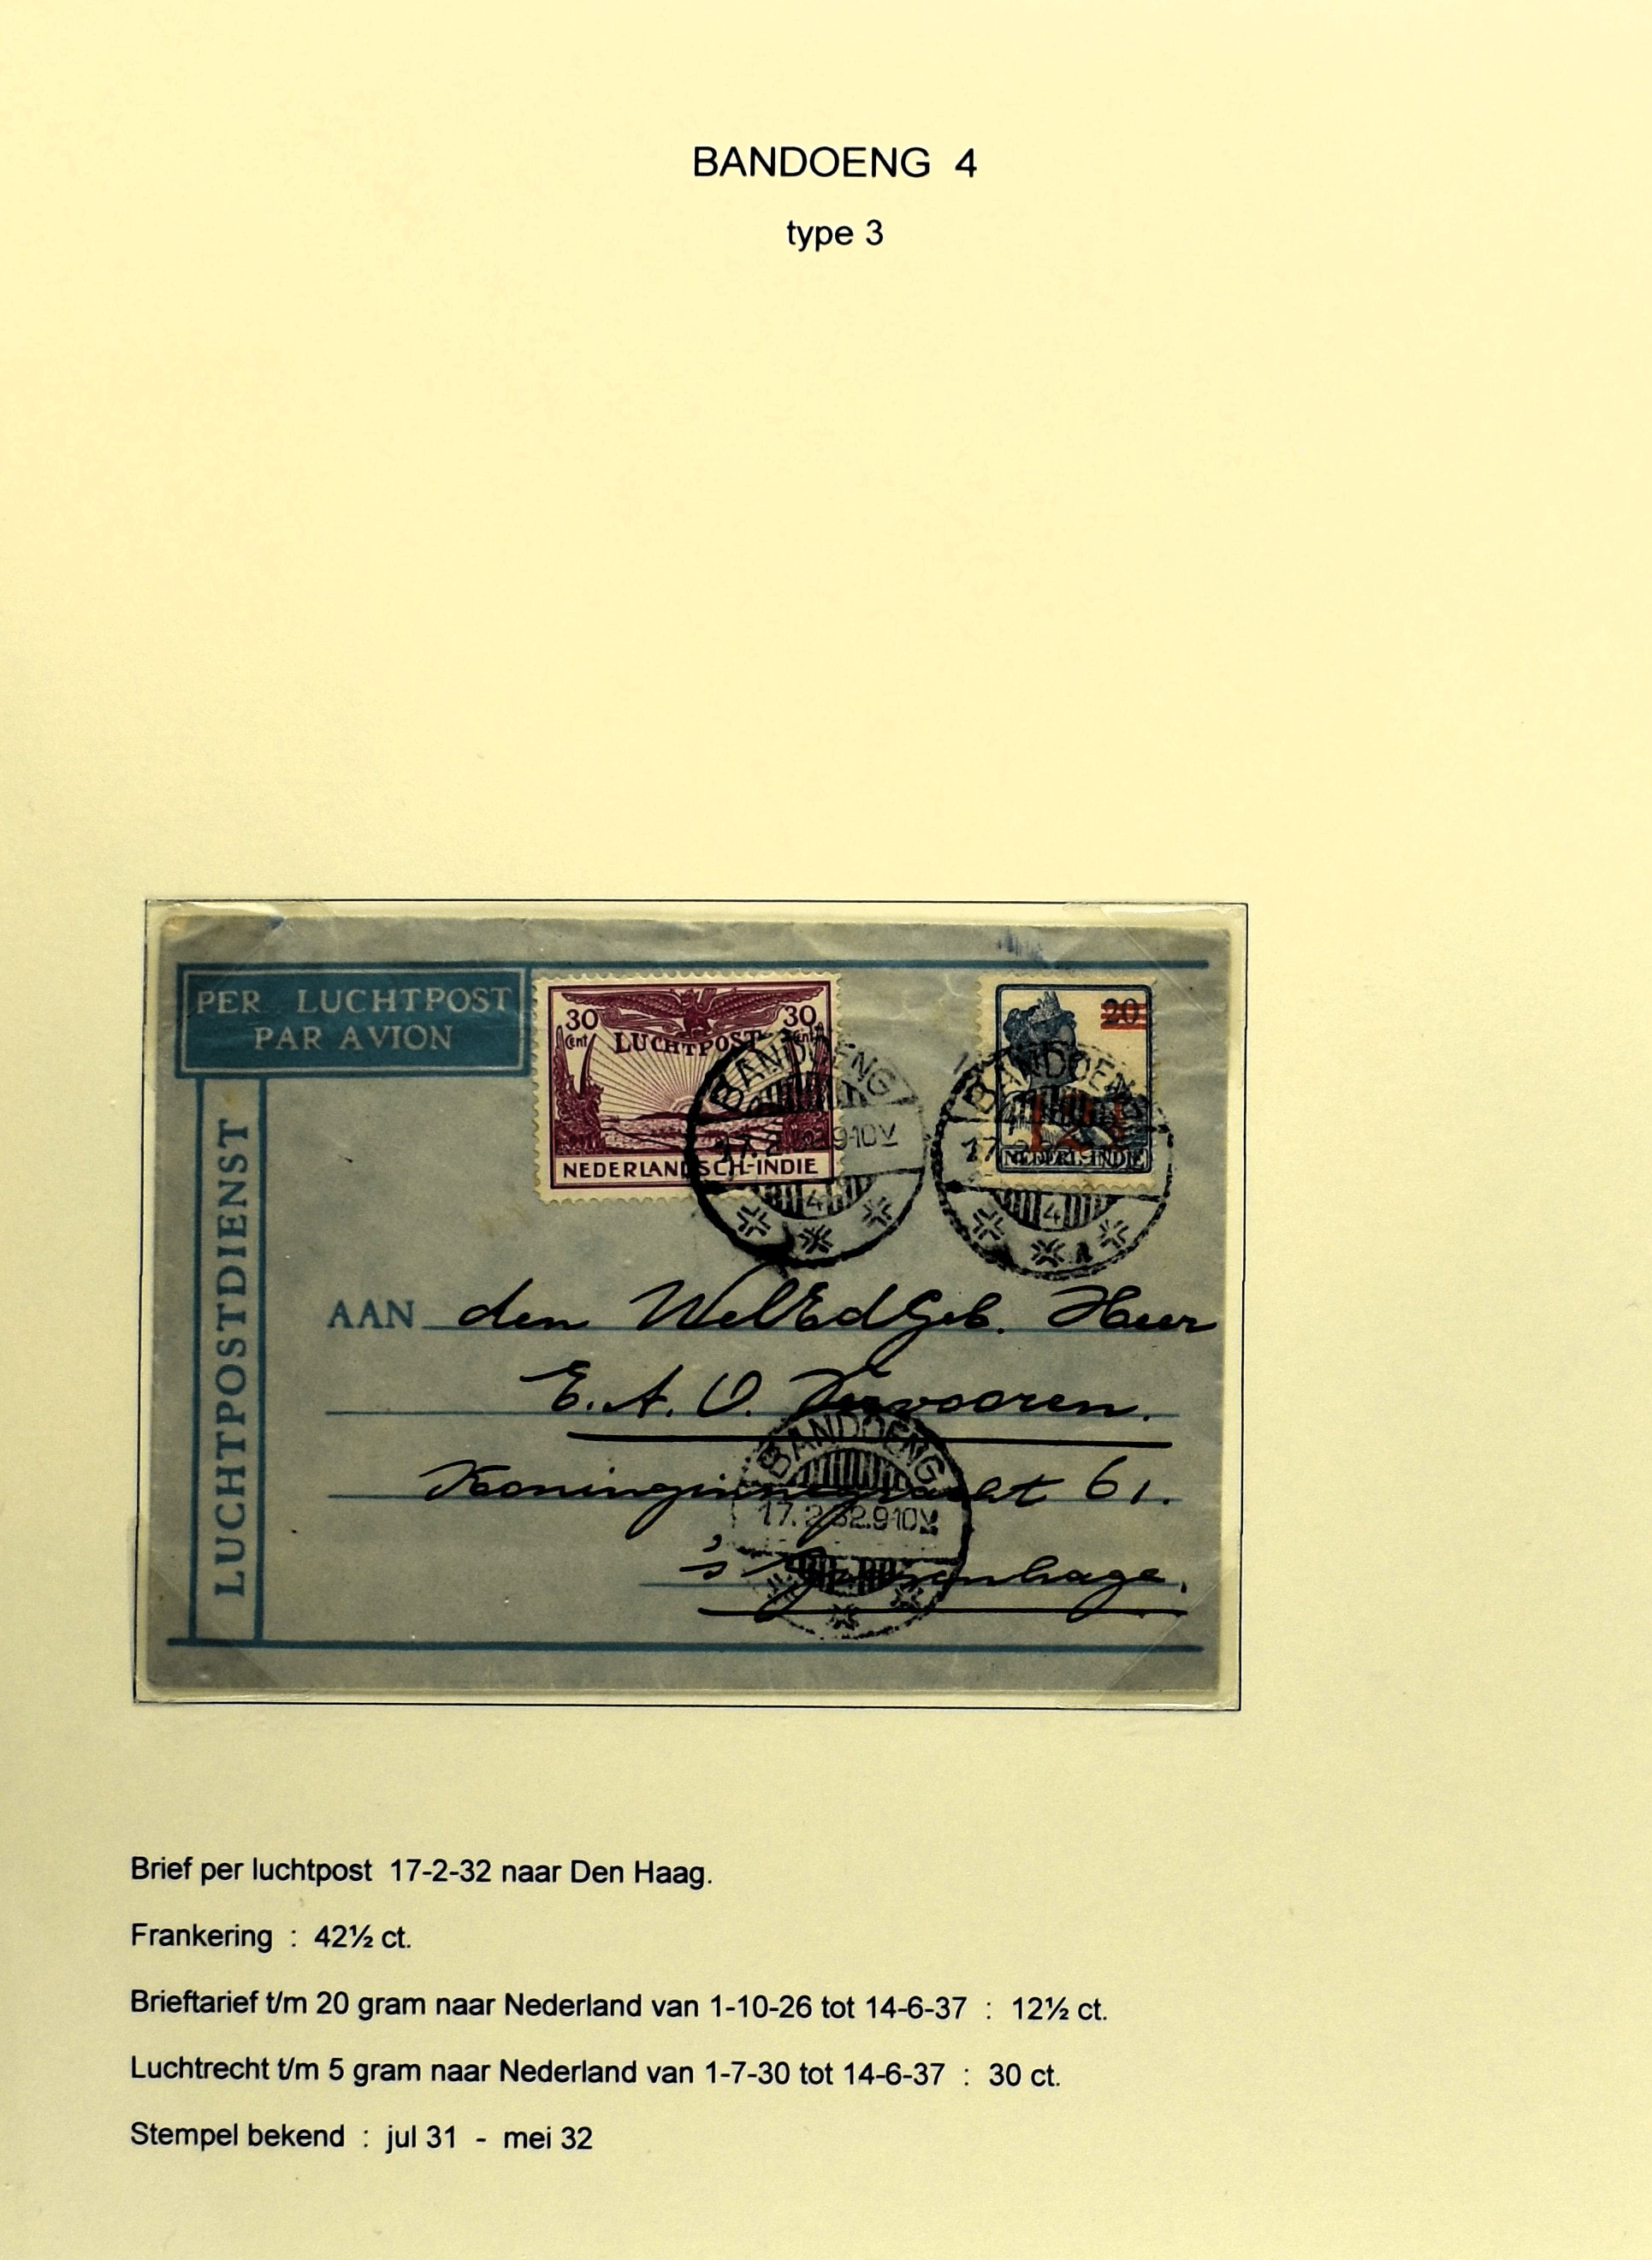 BANDOENG 4
type 3
PER LUCHTPOST
PAR AVION
LUCHTPOSTDIENST
30 Cent
30 Cent
LUCHTPOST
NEDERLANDSCH-INDIE
20
12½
NEDERL-INDIE
BANDOENG
17.2.32.9-10V
4
BANDOENG
17.2
4
AAN den WelEdGeb. Heer
E. A. O. Vervooren.
Koninginnegracht 61.
's Gravenhage.
BANDOENG
17.2.32.9-10V
Brief per luchtpost 17-2-32 naar Den Haag.
Frankering : 42½ ct.
Brieftarief t/m 20 gram naar Nederland van 1-10-26 tot 14-6-37 : 12½ ct.
Luchtrecht t/m 5 gram naar Nederland van 1-7-30 tot 14-6-37 : 30 ct.
Stempel bekend : jul 31 - mei 32